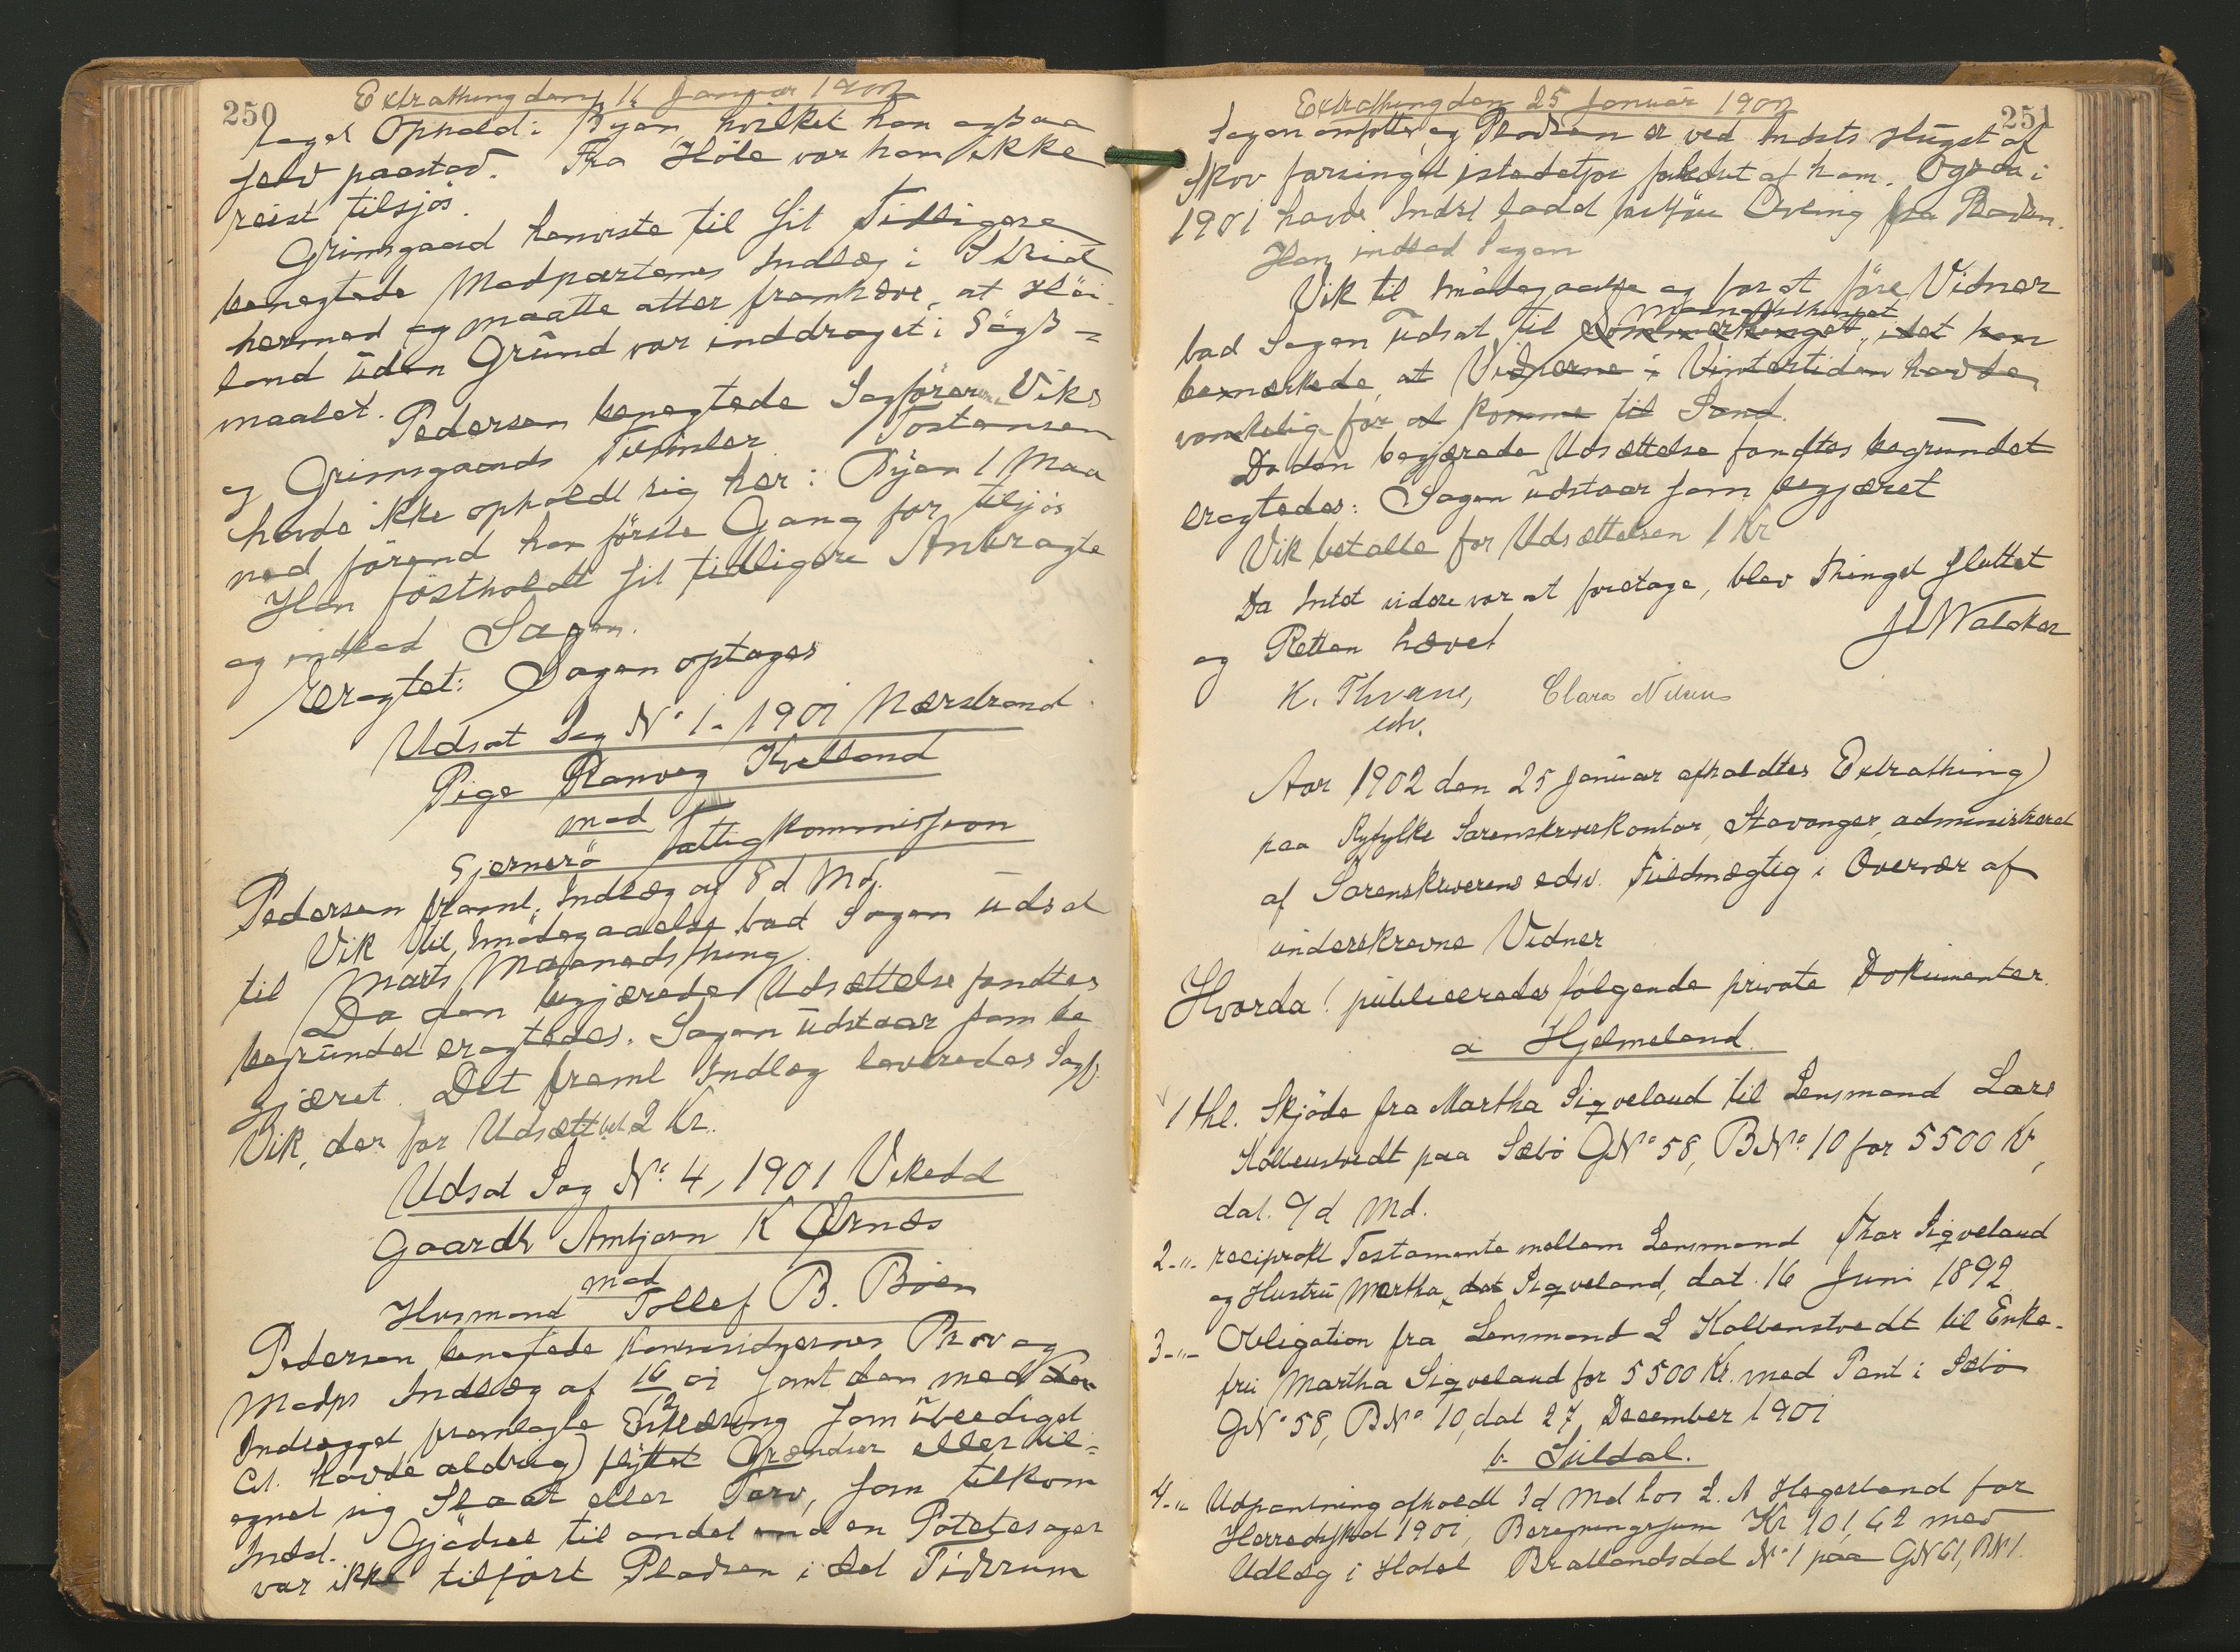 250
Extrathing den 16 Januar 1902
taget Ophold i Byen, hvilket han ogsaa
selv paastod. Fra Höle var han ikke
reist tilsjös.
Grimsgaard henviste til sit Tidligere
benegtede Modpartens Indlæg i Strid
hermed og maatte atter fremhæve, at Höi-
land uden Grund var inddraget i Sögs-
maalet.
Pedersen benegtede Sagförerne Viks
og Grimsgaards Tilförsler. Tostensen
havde ikke opholdt sig her i Byen 1 Maa
ned förend han förste Gang for tilsjös
Han fastholdt sit tidligere Anbragte
og indlod Sagen.
Eragtet: Sagen optages
Udsat Sag No 1 - 1901 Nærstrand
Pige Ranveg Kvelland
mod
Sjernerö Fattigkommission
Pedersen freml. Indlæg af 8 d Md.
Vik til Imödegaaelse bad Sagen udsat
til Marts Maanedsthing.
Da den begjærede Udsættelse fandtes
begrundet eragtedes: Sagen udstaar som be
gjæret. Det freml Indlæg leveredes Sagf.
Vik, der for Udsætt bet 2 Kr.
Udsat Sag No 4, 1901 Vikedal
Gaardbr Ambjørn K Ørnes
mod
Husmand Tollef B. Böen
Pedersen benegtede Kontravidnernes Prov og
Modps Indlæg af 16/12 01 samt den med
Indlægget fremlagte Erklæring som ubeediget
Cit. havde aldrig flyttet Grændser eller til-
egnet sig Slaat eller Torv, som tilkom
Indst. Gjödsel til andet end en Potetesager
var ikke tilfört Pladsen i det Tidsrum
251
Extrathing den 25 Januar 1902
Sagen omfatter, og Pladsen er ved Indsts Hugst af
Skov forringet istedetfor forbedret af ham. Ogsaa i
1901 havde Indst ladd Avling fra Pladsen.
Han indlod Sagen
Vik til Imödegaaelse og for at före Vidner
Maanedsthinget
bad Sagen udsat til Sommerthinget, idet han
bemærkede, at Vidnerne i Vintertiden havde
vanskelig for at komme til Sand.
Da den begjærede Udsættelse fandtes begrundet
eragtedes: Sagen udstaar som begjæret
Vik betalte for Udsættelsen 1 Kr
Da Intet videre var at foretage, blev Thinget sluttet
og Retten hævet
K. Thrane, Clara Nilsens
edv.
Aar 1902 den 25 Januar afholdtes Extrathing
paa Ryfylke Sorenskriverkontor, Stavanger, administreret
af Sorenskriverens edsv. Fuldmægtig i Overvær af
underskrevne Vidner
Hvorda! publiceredes følgende private Dokumenter.
a Hjelmeland
1 thl. Skjöde fra Martha Sigveland til Lensmand Lars
Kolbenstvedt paa Sæbö GNo 58, BNo 10 for 5500 Kr,
dat. 9/d Md.
2-"- reciprokt Testamente mellem Lensmand Thor Sigveland
og Hustru Martha, dat Sigveland, dat. 16 Juni 1892
3-"- Obligation fra Lensmand L Kolbenstvedt til Enke-
fru Martha Sigveland for 5500 Kr. med Pant i Sæbö
GNo 58, BNo 10, dat 27 December 1901
b. Suldal.
4-" Udpantning afholdt 3 d Md hos L. A Hegerland for
Herredsskat 1901, Beregningssum Kr 101,62 med
Udlæg i Hotel Bratlandsdal No 1 paa GN 61, BN 1.